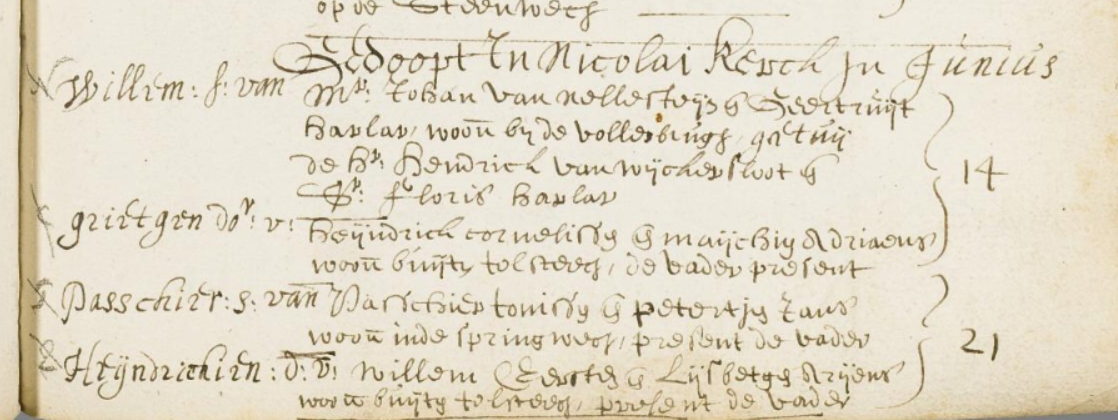 op de Steenwech
Gedoopt In Nicolai Kerck In Junius
Willem: s: van Mr: Johan van nellesteijn & Geertruijt
harlar, woon̄ bij de vollersbrugh, get㠹uij
de hr: Hendrick van wijckersloot &
Sr: floris harlar 14
grietgen dor: v: heijndrick cornelissn & maijchin Adriaens
woon̄ buijtn tolsteech, de vader present
Passchier: s: van Passchier tonissn & petertjn Jans
woon̄ inde springwech, present de vader 21
Heyndrickien: d: v: willem Eersten & Lijsbetgn Arijens
woon̄ buijtn tolsteech, present de vader